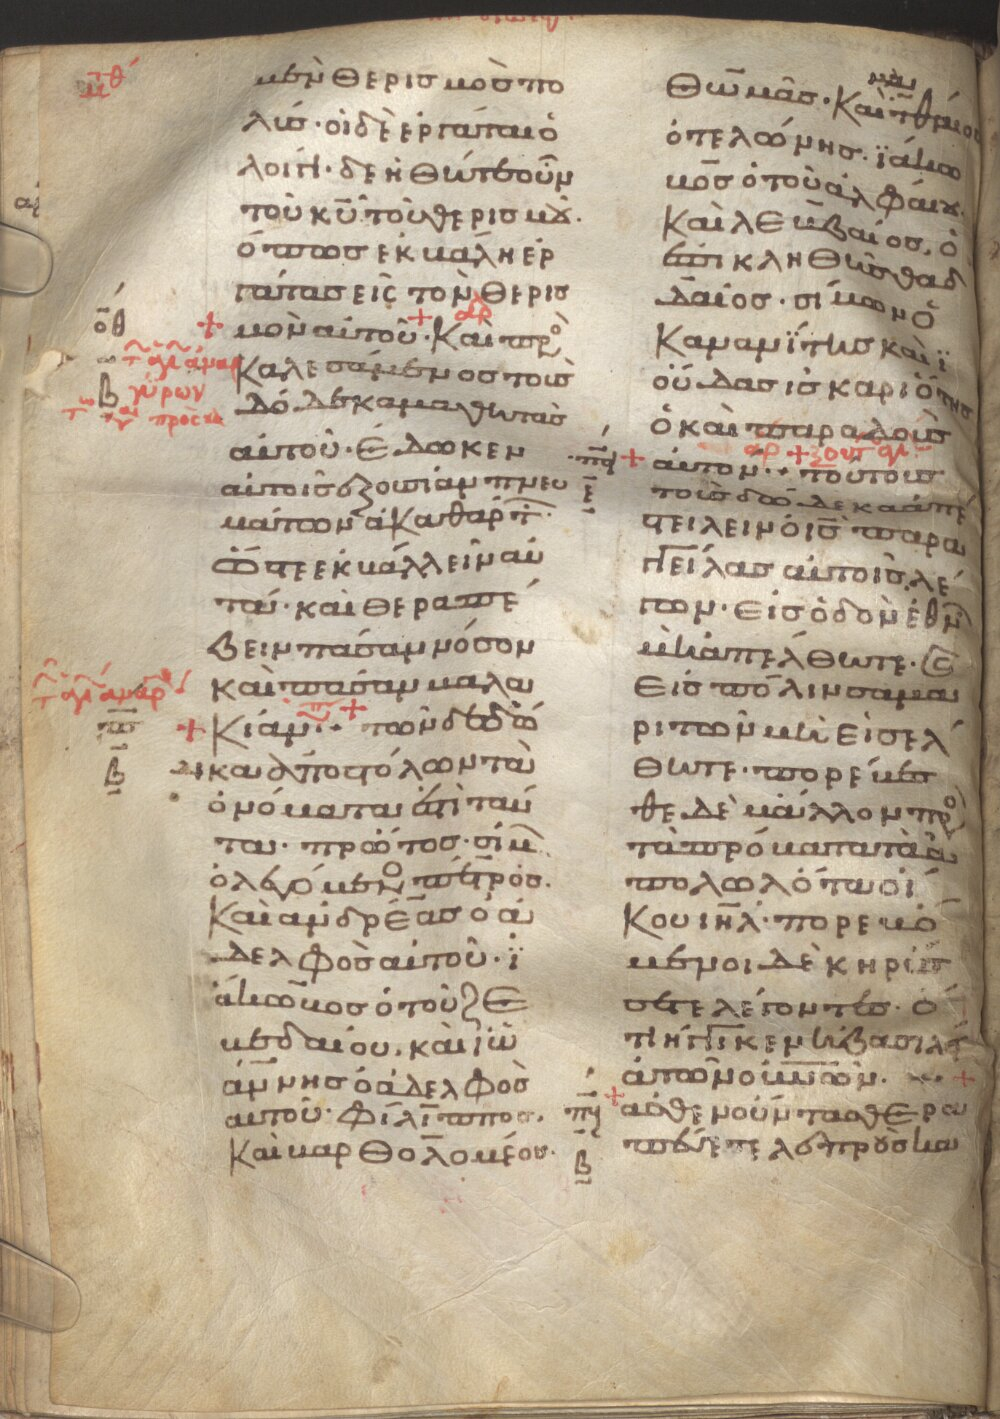 μὲν θερισμὸς πο
λύς· οἱ δὲ ἐργάται ὀ
λοίγοι· δεήθώτε οὖν
τοῦ κῡ τοῦ θερισμοῦ·
ὅπως ἐκβάλη ἐρ
γάτας εἰς τὸν θερισ
μὸν αὐτοῦ· Καὶ προ
καλεσάμενος τοὺς
δώδεκα μαθητὰς
αὐτοῦ· ἔδωκεν
αὐτοῖς ἐξουσίαν πνευ
μάτων ἀκαθάρτ
ὥστε ἐκβάλλειν αὐ
τά· καὶ θεραπεύ
ειν πάσαν νόσον
καὶ πάσαν μαλα
κίαν· τῶν δὲ δώ
δεκα ἀποστόλων τὰ
ὀνόματα ἐστὶ ταῦ
τα· πρῶτος· σίμ
ὁ λεγόμενος πέτρος·
Καὶ ἀνδρέας ὁ ἀ
δελφὸς αὐτοῦ· ϊ
άκωβος ὁ τοῦ ζε
βεδαίου· καὶ ἰω
άννης ὁ ἀδελφὸς
αὐτοῦ· φίλιππος·
Καὶ βαρθολομέος·
θωμᾶς· Καὶ
ὁ τελώνης· ϊάκω
βος ὁ τοῦ ἀλφαίου·
Καὶ λεββαίος· ὁ
ἐπικληθεὶς θαδ
δαίος· σίμων ὁ
κανανίτης καὶ ϊ
ούδας ισκαριότης
ὁ καὶ παραδοὺς
αὐτον· τούτους
τοὺς δώδεκα ἀπέ
στειλεν ὁ ις παρα
γγείλας αὐτοῖς λέ
γων· εἰς ὁδὸν ἐθν
μὴ ἀπέλθωτε· καὶ
εἰς πόλιν σαμα
ριτῶν μὴ εἰσέλ
θωτε· πορεύεσ
θε δὲ μάλλον προ
τὰ πρόβατα τὰ ἀ
πολωλότα οί
κου ιηλ· πορευό
μενοι δὲ κηρύσ
σετε λέγοντες· ὅ
τι ἤγγικεν ἡ βασιλεί
α τῶν οὐνῶν·
ἀσθενοῦντας θερα
πεύετε λεπροὺς κα